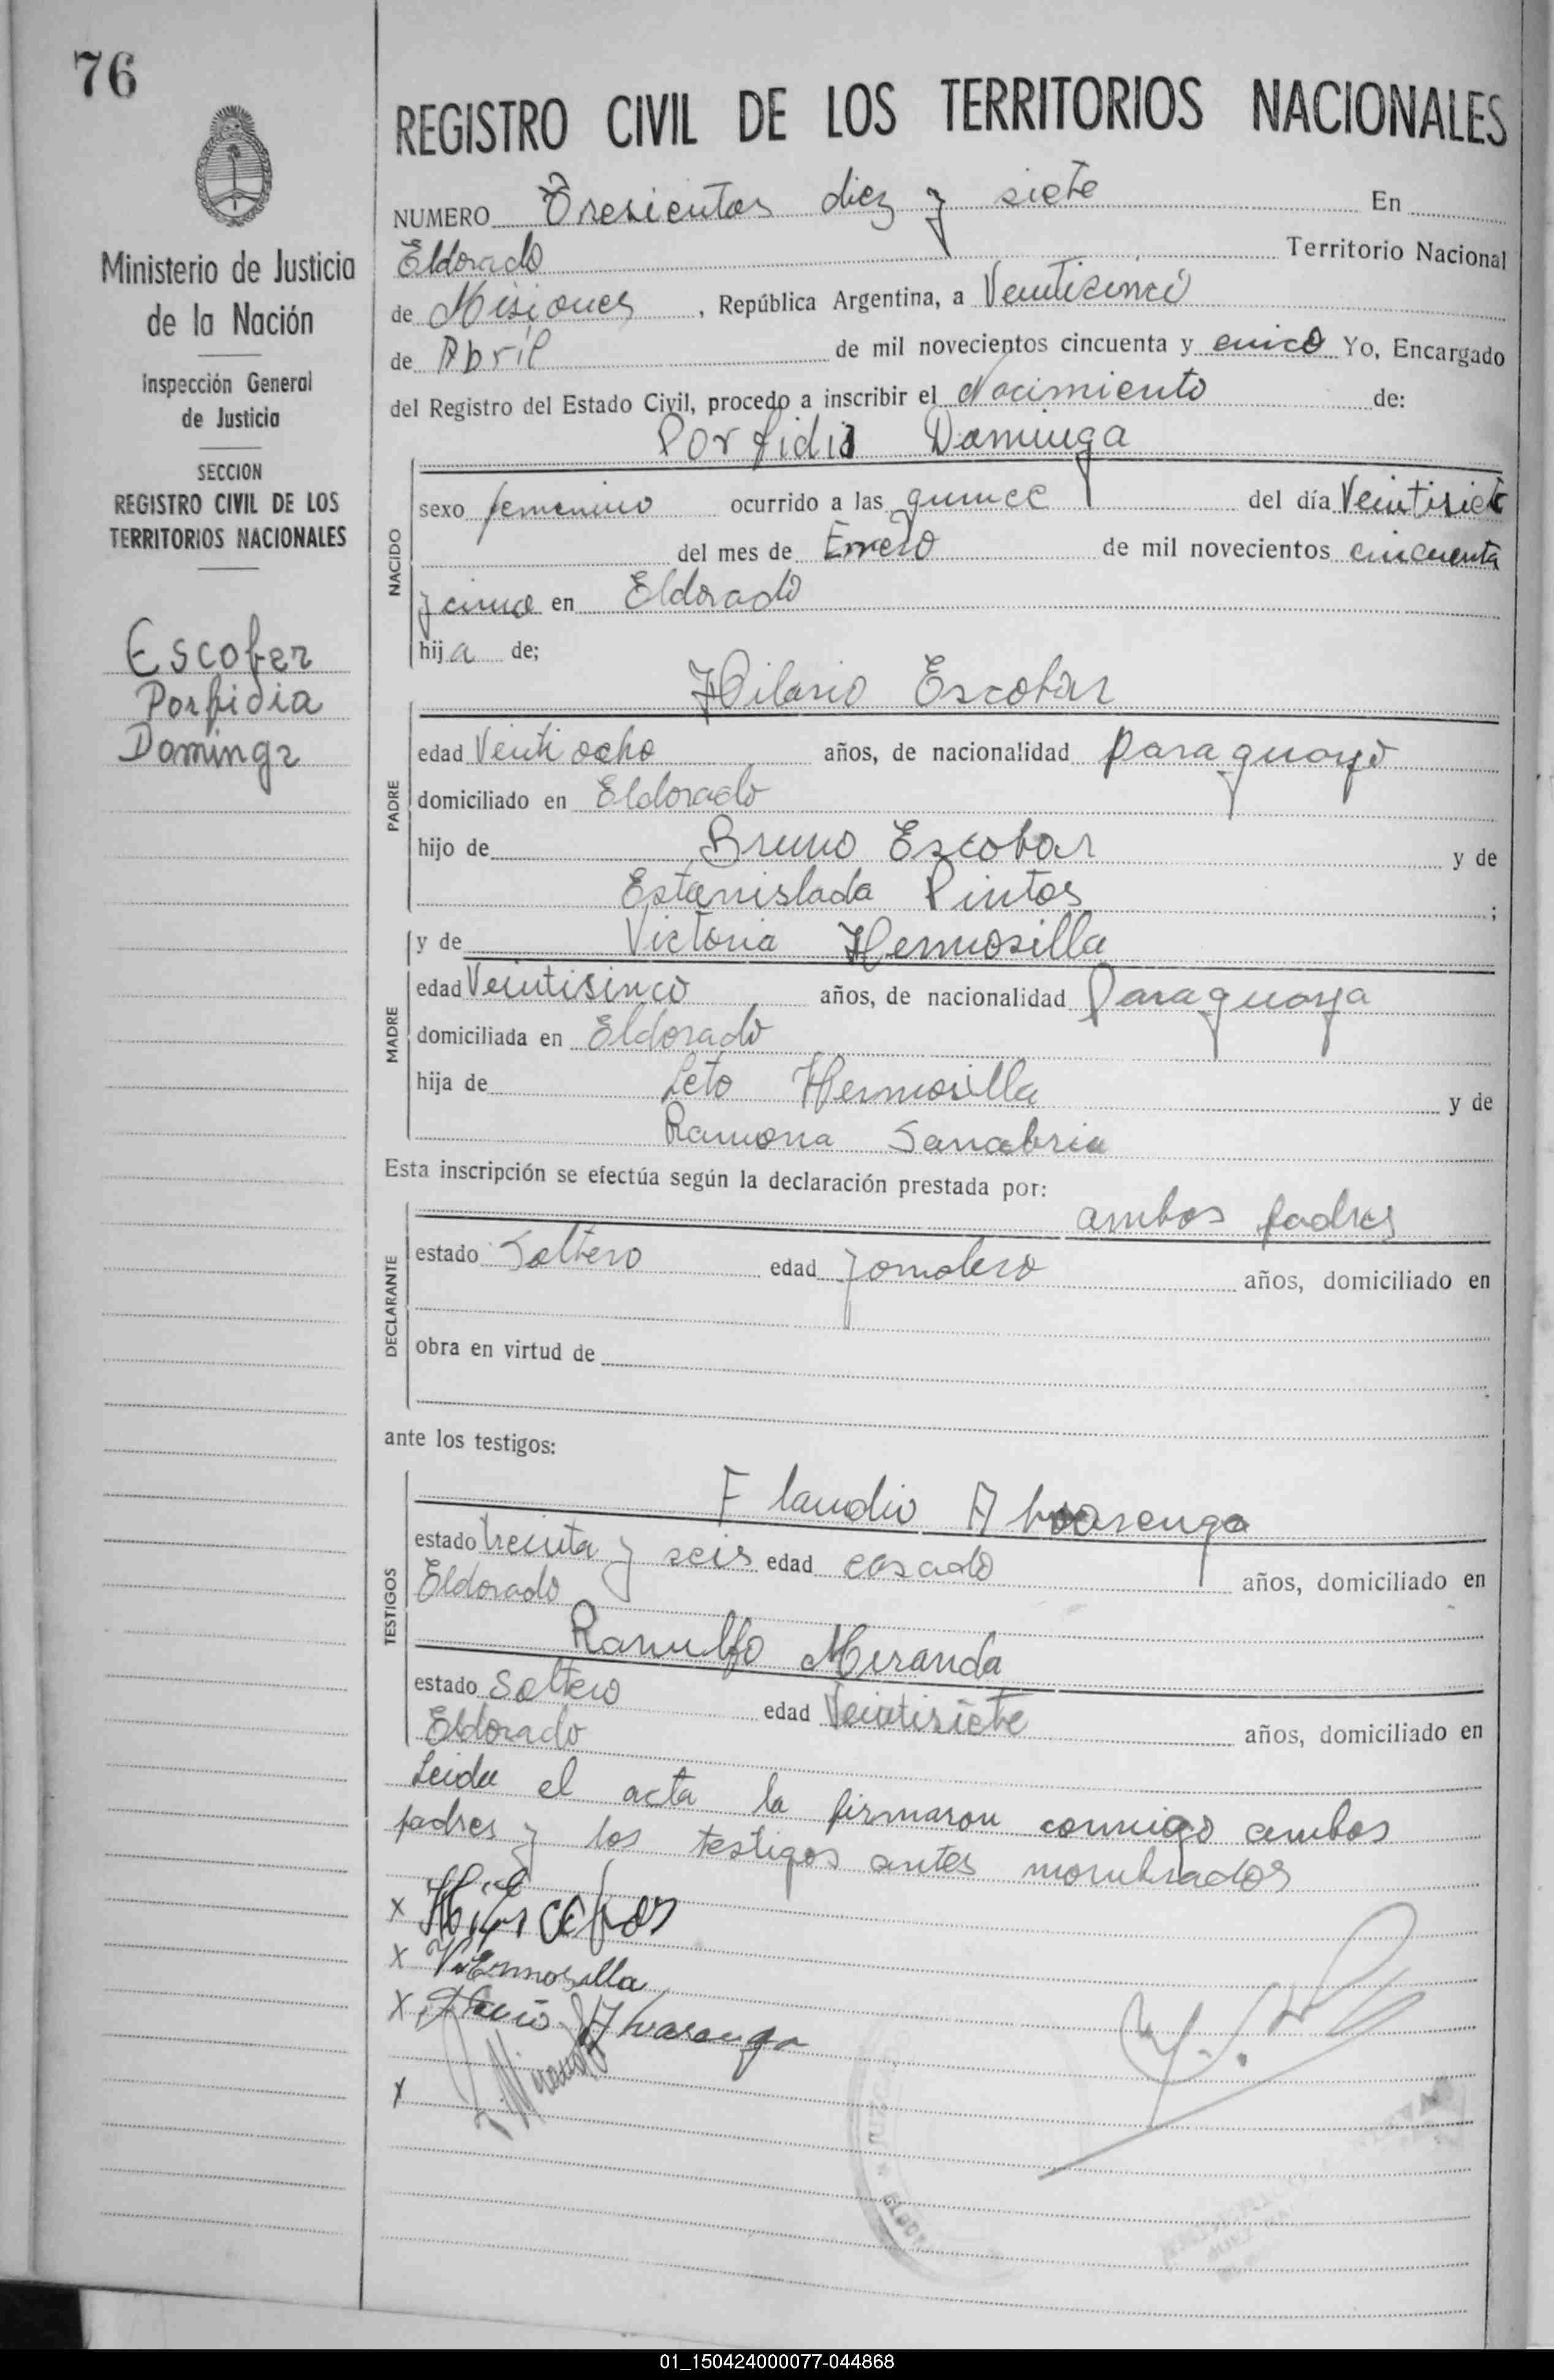 76
REGISTRO CIVIL DE LOS TERRITORIOS NACIONALES
Ministerio de Justicia
de la Nación
Inspección General
de Justicia
SECCION
REGISTRO CIVIL DE LOS
TERRITORIOS NACIONALES
Escober
Porfidia
Dominga
NUMERO Tresientos diez y siete En
Eldorado Territorio Nacional
de Misiones, República Argentina, a Veintisinco
de Abril de mil novecientos cincuenta y cinco Yo, Encargado
del Registro del Estado Civil, procedo a inscribir el Nacimiento de:
Porfidia Dominga
NACIDO
sexo femenino ocurrido a las quince del día Veintisiete
del mes de Enero de mil novecientos cincuenta
y cinco en Eldorado
hija de;
Hilario Escobar
PADRE
edad Veinti ocho años, de nacionalidad paraguayo
domiciliado en Eldorado
hijo de Bruno Escobar y de
Estanislada Pintos ;
y de Victoria Hermosilla
MADRE
edad Veintisinco años, de nacionalidad Paraguaya
domiciliada en Eldorado
hija de Leto Hermosilla y de
Ramona Sanabria
Esta inscripción se efectúa según la declaración prestada por:
ambos padres
DECLARANTE
estado Soltero edad jornalero años, domiciliado en
obra en virtud de
ante los testigos:
Flaudio
TESTIGOS
estado treinta y seis edad casado años, domiciliado en
Eldorado
Ranulfo Miranda
estado Soltero edad Veintisiete años, domiciliado en
Eldorado
Leida el acta la firmaron conmigo ambos
padres y los testigos antes nombrados
x
x V. Hermosilla
x Alvarenga
x Miranda
01_150424000077-044868